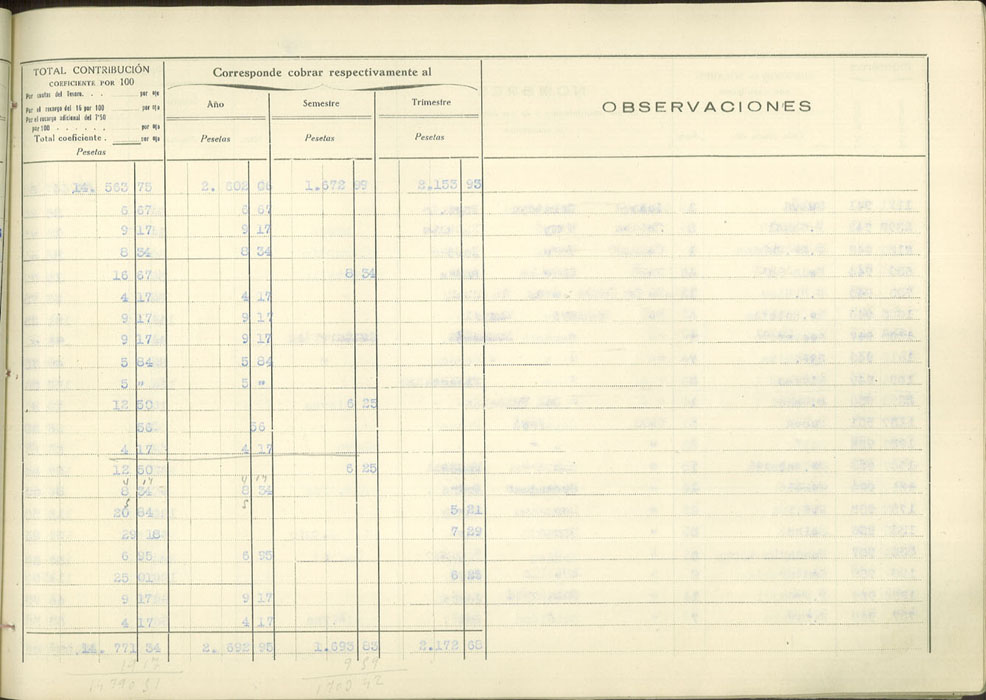 TOTAL CONTRIBUCIÓN
COEFICIENTE POR 100
Por cuotas del Tesoro. . . por 0/0
Por el recargo del 16 por 100 por 0/0
Por el recargo adicional del 7'50
por 100 . . . . . . por 0/0
Total coeficiente . por 0/0
Pesetas
Corresponde cobrar respectivamente al
Año Semestre Trimestre
Pesetas Pesetas Pesetas
OBSERVACIONES
14. 563 75 2. 602 06 1.672 99 2.153 93
6 67 6 67
9 17 9 17
8 34 8 34
16 67 8 34
4 17 4 17
9 17 9 17
9 17 9 17
5 84 5 84
5 " 5 "
12 50 6 25
56 56
4 17 4 17
12 50 6 25
4 17 4 17
8 34 8 34
5 5
20 84 5 21
29 18 7 29
6 95 6 95
25 01 6 25
9 17 9 17
4 17 4 17
14. 771 34 2. 692 95 1.693 83 2.172 68
1703 42